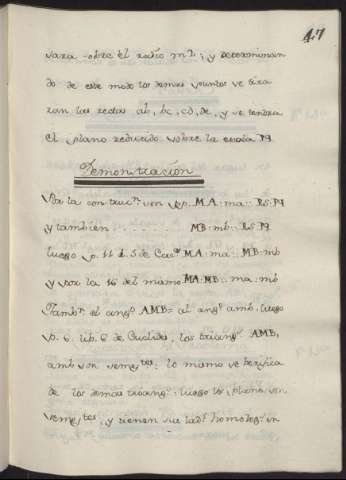 47
vara sobre el radio m?; y determinan
do de este modo los demas puntos se tira
ran las rectas ab, bc, cd, de, y se tendra
el plano reducido sobre la escala PQ
Demonstracion
Por la construcn. son pp. MA : ma :: RS : PQ
y tambien . . . . . . . . MB : mb :: RS : PQ
luego p. 11 del 5 de MA : ma :: MB : mb
y por la 16 del mismo MA : MB :: ma : mb
Tambn. el angº. AMB = al angº. amb, luego
p. 6. lib. 6 de Euclides, los triangs. AMB,
amb son semejtes: lo mismo se berifica
de los demas triangs.: luego los planos son
semejtes, y tienen sus lads. homologs. in